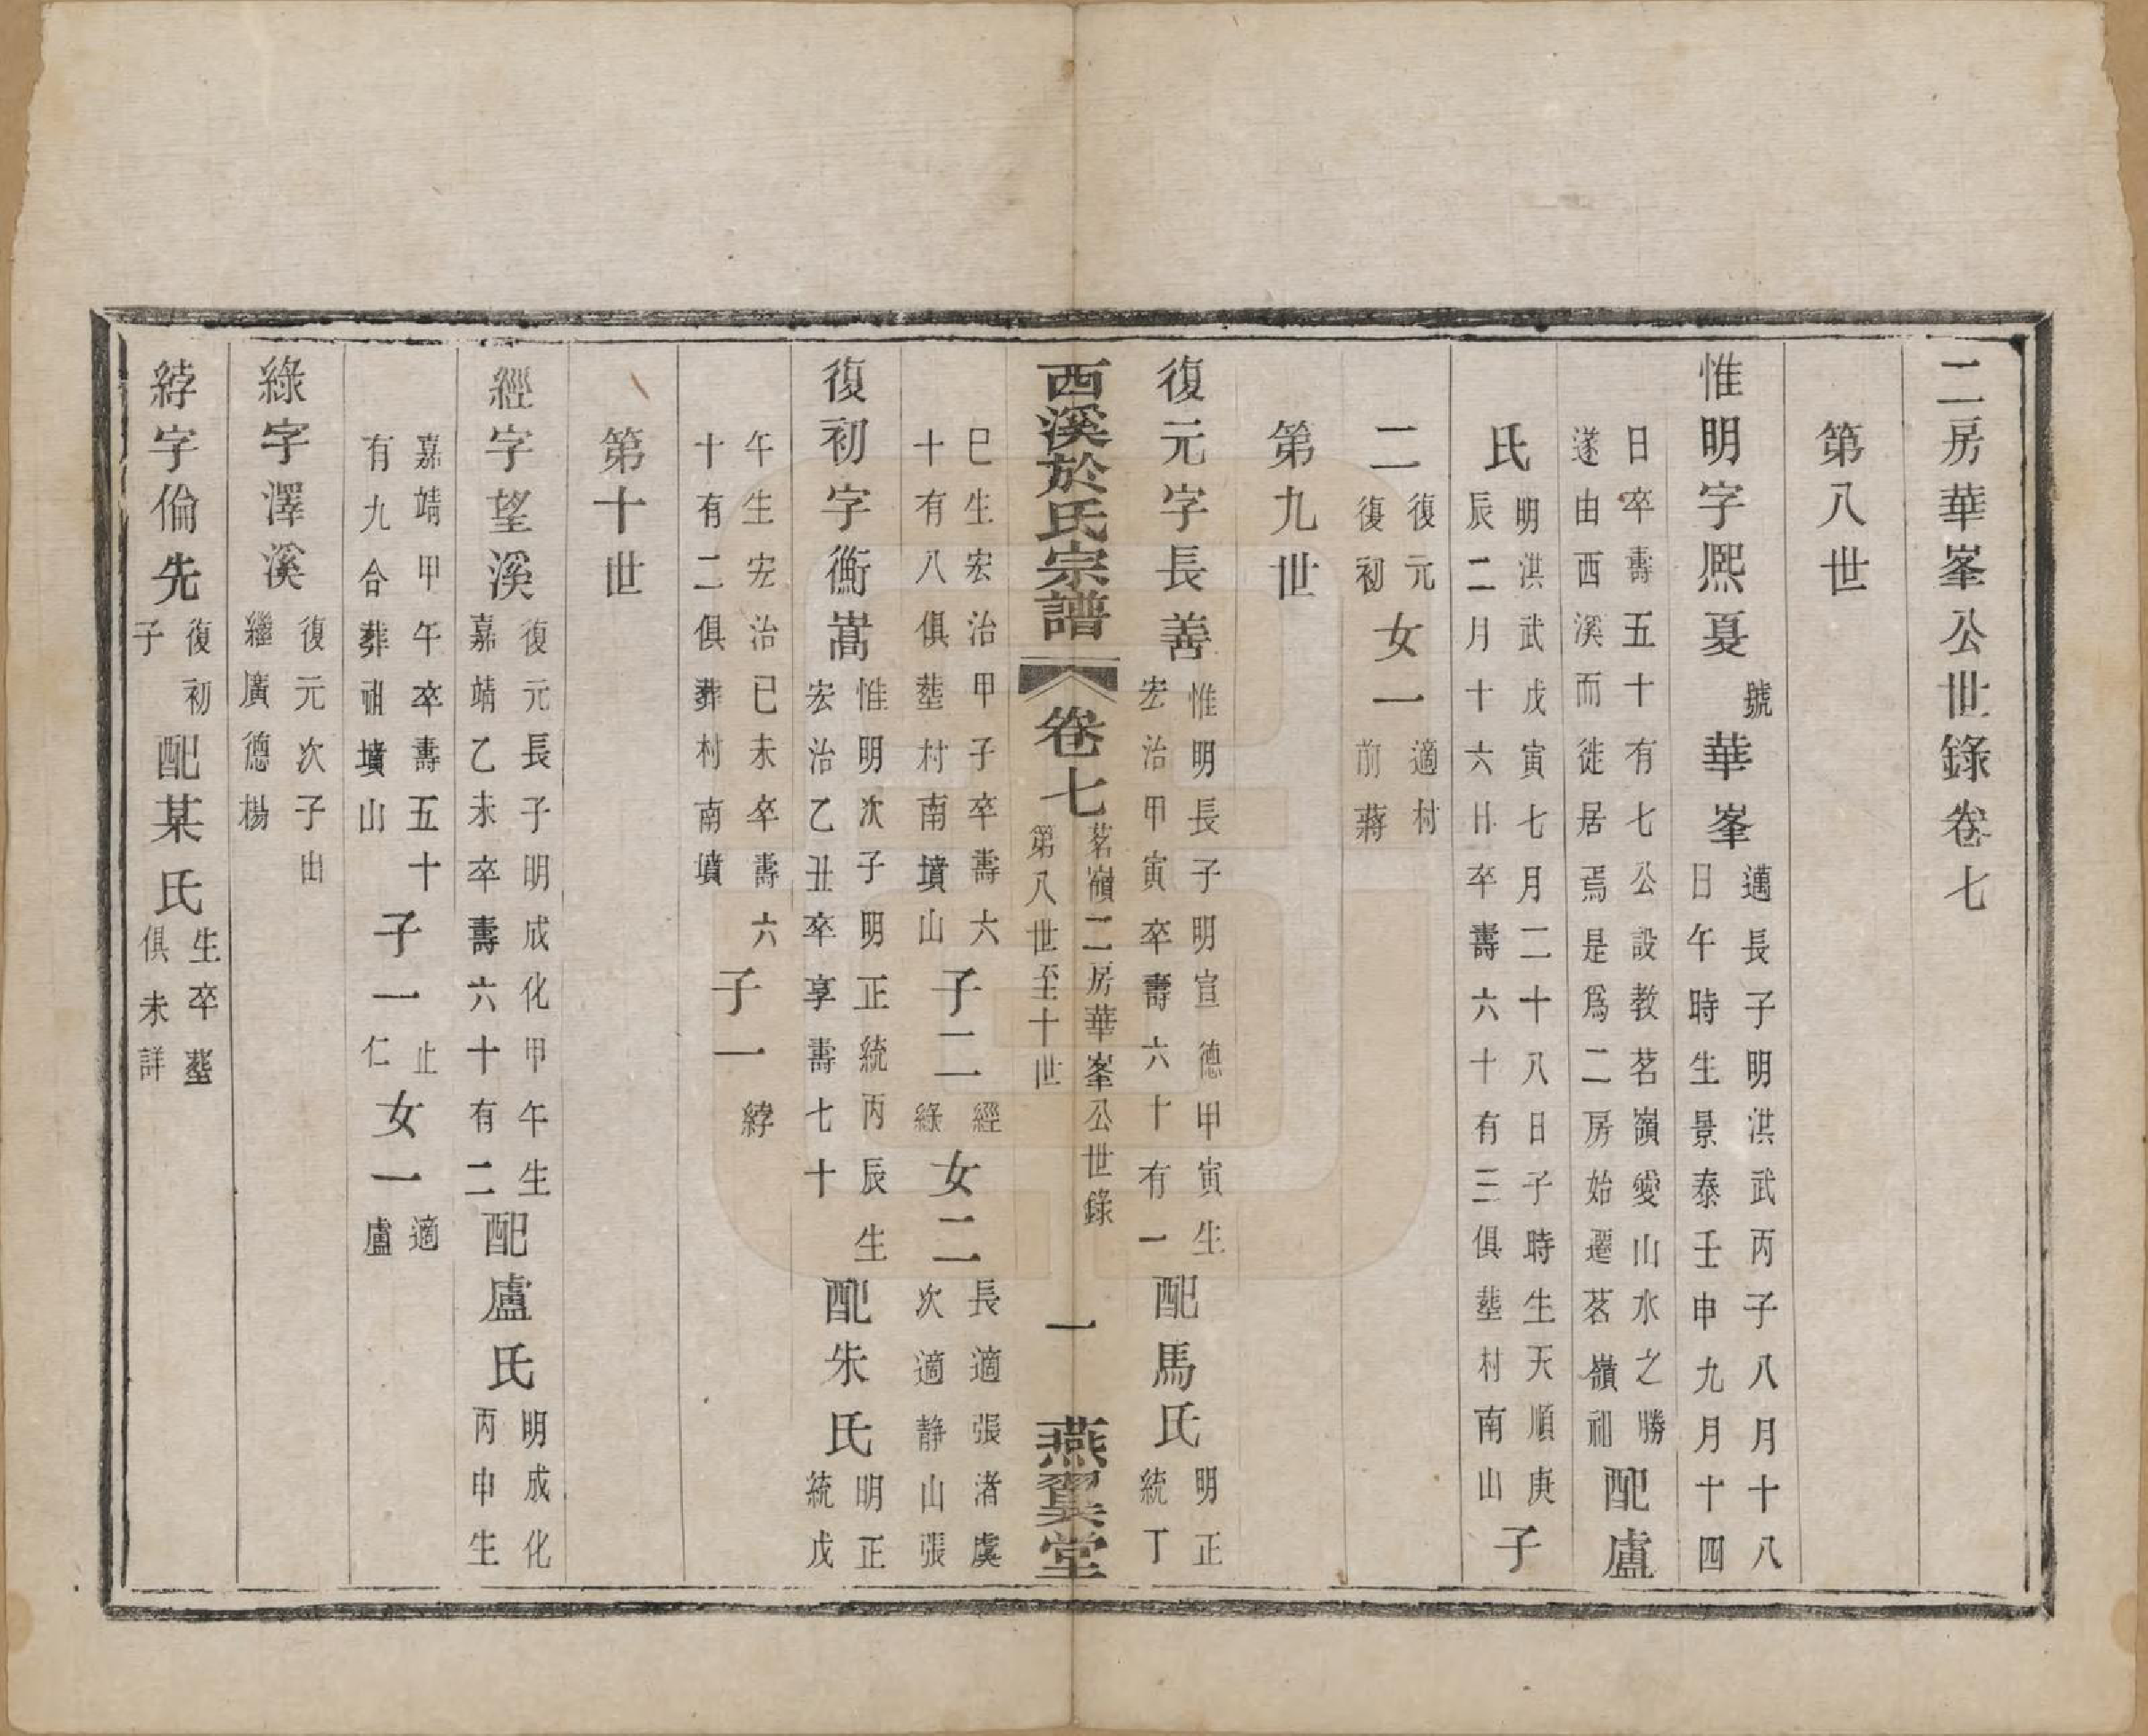 二房華峯公世錄卷七
第八世
惟明字熈夏號華峯邁長子明洪武丙子八月十八
日午時生景泰壬申九月十四
日卒壽五十有七公設教茗嶺愛山水之勝
遂由西溪而徙居焉是爲二房始遷茗嶺祖配盧
氏明洪武戊寅七月二十八日子時生天順庚
辰二月十六日卒壽六十有三俱塟村南山子
二復元
復初女一適村
前蔣
第九世
復元字長善惟明長子明宣德甲寅生
宏治甲寅卒壽六十有一配馬氏明正
統丁
西溪於氏宗譜 卷七 茗嶺二房華峯公世錄
第八世至十世 一 燕翼堂
巳生宏治甲子卒壽六
十有八俱塟村南墳山子二經
綠女二長適張渚虞
次適靜山張
復初字衡嵩惟明次子明正統丙辰生
宏治乙丑卒享壽七十配朱氏明正
統戊
午生宏治已未卒壽六
十有二俱葬村南墳子一綍
第十世
經字望溪復元長子明成化甲午生
嘉靖乙未卒壽六十有二配盧氏明成化
丙申生
嘉靖甲午卒壽五十
有九合葬祖墳山子一止
仁女一適
盧
綠字澤溪復元次子出
繼廣德楊
綍字倫先復初
子配某氏生卒塟
俱未詳